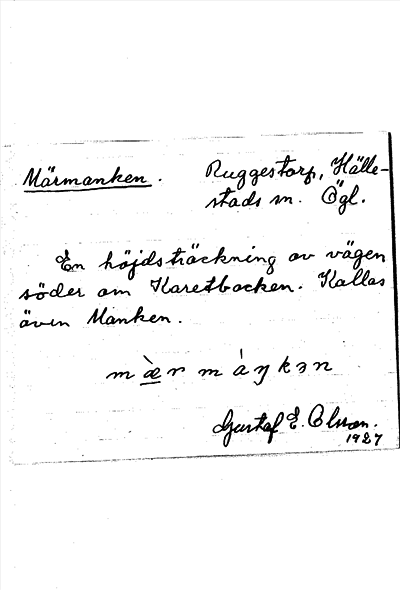 Märmanken.
Ruggestorp, Hälle-
stads sn. Ögl.
En höjdsträckning av vägen
söder om Karetbacken. Kallas
även Manken.
mæ̀r máŋkən
Gustaf E. Olsson.
1927